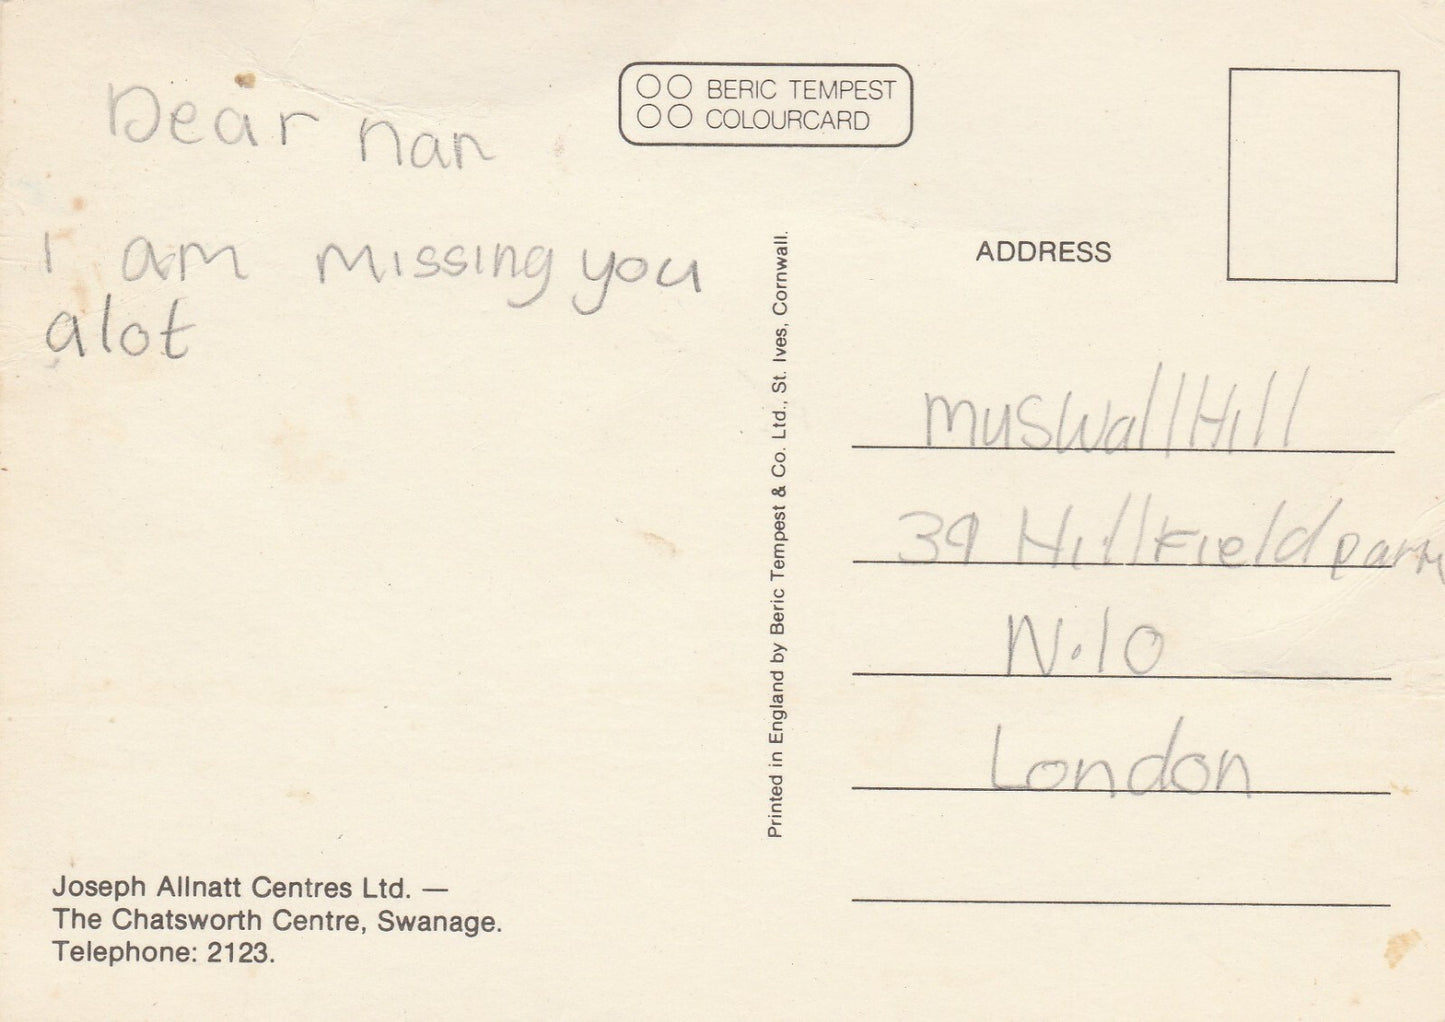 Dear nan
I am missing you
alot
Joseph Allnatt Centres Ltd. —
The Chatsworth Centre, Swanage.
Telephone: 2123.
BERIC TEMPEST
COLOURCARD
Printed in England by Beric Tempest & Co. Ltd., St. Ives, Cornwall.
ADDRESS
muswall Hill
39 Hillfield
N.10
London